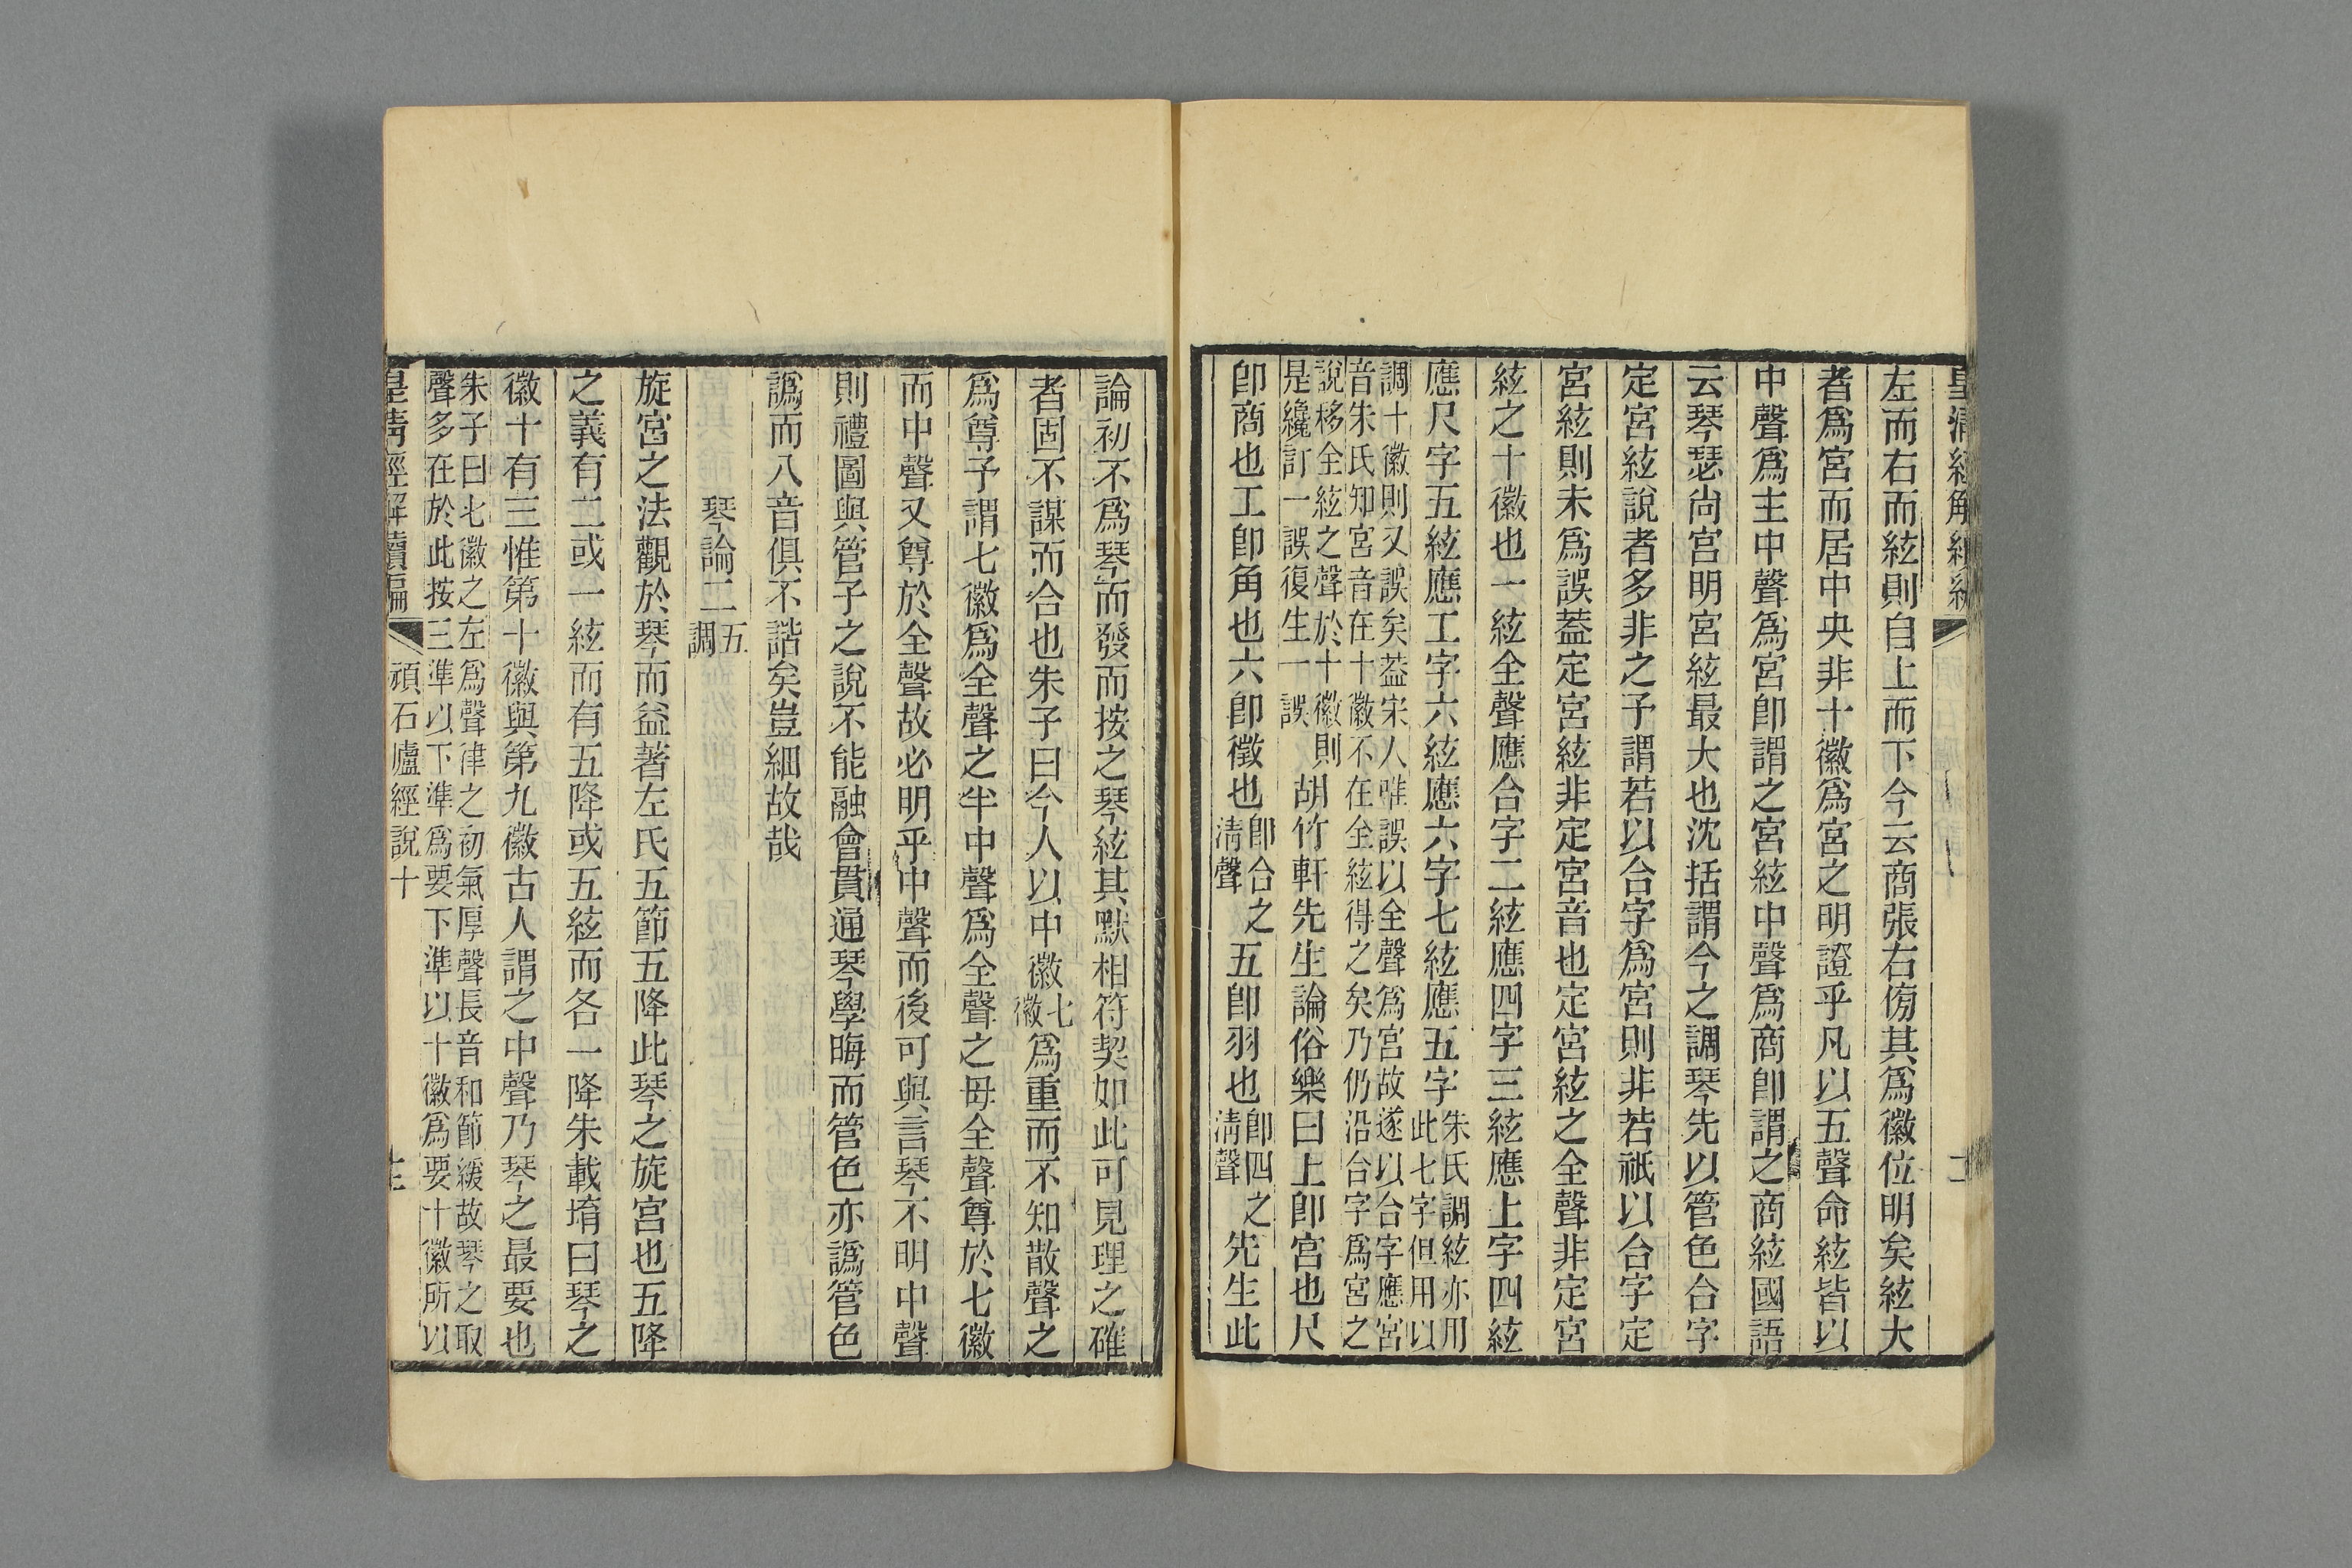 左而右而絃則自上而下今云商張右傍其爲徽位明矣絃大
者爲宮而居中央非十徽爲宮之明證乎凡以五聲命絃皆以
中聲爲主中聲爲宮卽謂之宮絃中聲爲商卽謂之商絃國語
云琴瑟尚宮明宮絃最大也沈括謂今之調琴先以管色合字
定宮絃說者多非之予謂若以合字爲宮則非若祇以合字定
宮絃則未爲誤葢定宮絃非定宮音也定宮絃之全聲非定宮
絃之十徽也一絃全聲應合字二絃應四字三絃應上字四絃
應尺字五絃應工字六絃應六字七絃應五字朱氏調絃亦用此七字但用以
調十徽則又誤矣葢宋人唯誤以全聲爲宮故遂以合字應宮
音朱氏知宮音在十徽不在全絃得之矣乃仍沿合字爲宮之
說移全絃之聲於十徽則
是纔訂一誤復生一誤
胡竹軒先生論俗樂曰上卽宮也尺
卽商也工卽角也六卽徵也卽合之清聲五卽羽也卽四之清聲先生此
論初不爲琴而發而按之琴絃其默相符契如此可見理之確
者固不謀而合也朱子曰今人以中徽七徽爲重而不知散聲之
爲尊予謂七徽爲全聲之半中聲爲全聲之母全聲尊於七徽
而中聲又尊於全聲故必明乎中聲而後可與言琴不明中聲
則禮圖與管子之說不能融會貫通琴學晦而管色亦譌管色
譌而八音俱不諧矣豈細故哉
琴論二五調
旋宮之法觀於琴而益著左氏五節五降此琴之旋宮也五降
之義有二或一絃而有五降或五絃而各一降朱載堉曰琴之
徽十有三惟第十徽與第九徽古人謂之中聲乃琴之最要也
朱子曰七徽之左爲聲律之初氣厚聲長音和節緩故琴之取
聲多在於此按三準以下準爲要下準以十徽爲要十徽所以
皇清經解續編
頑石廬經說十